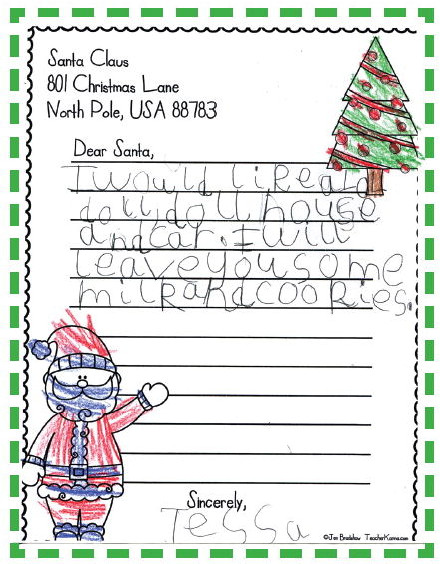 Santa Claus
801 Christmas Lane
North Pole, USA 88783
Dear Santa,
I would like a
doll, doll house
and car. I will
leave you some
milk and cookies.
Sincerely,
Tessa
©Jen Bradshaw TeacherKarma.com